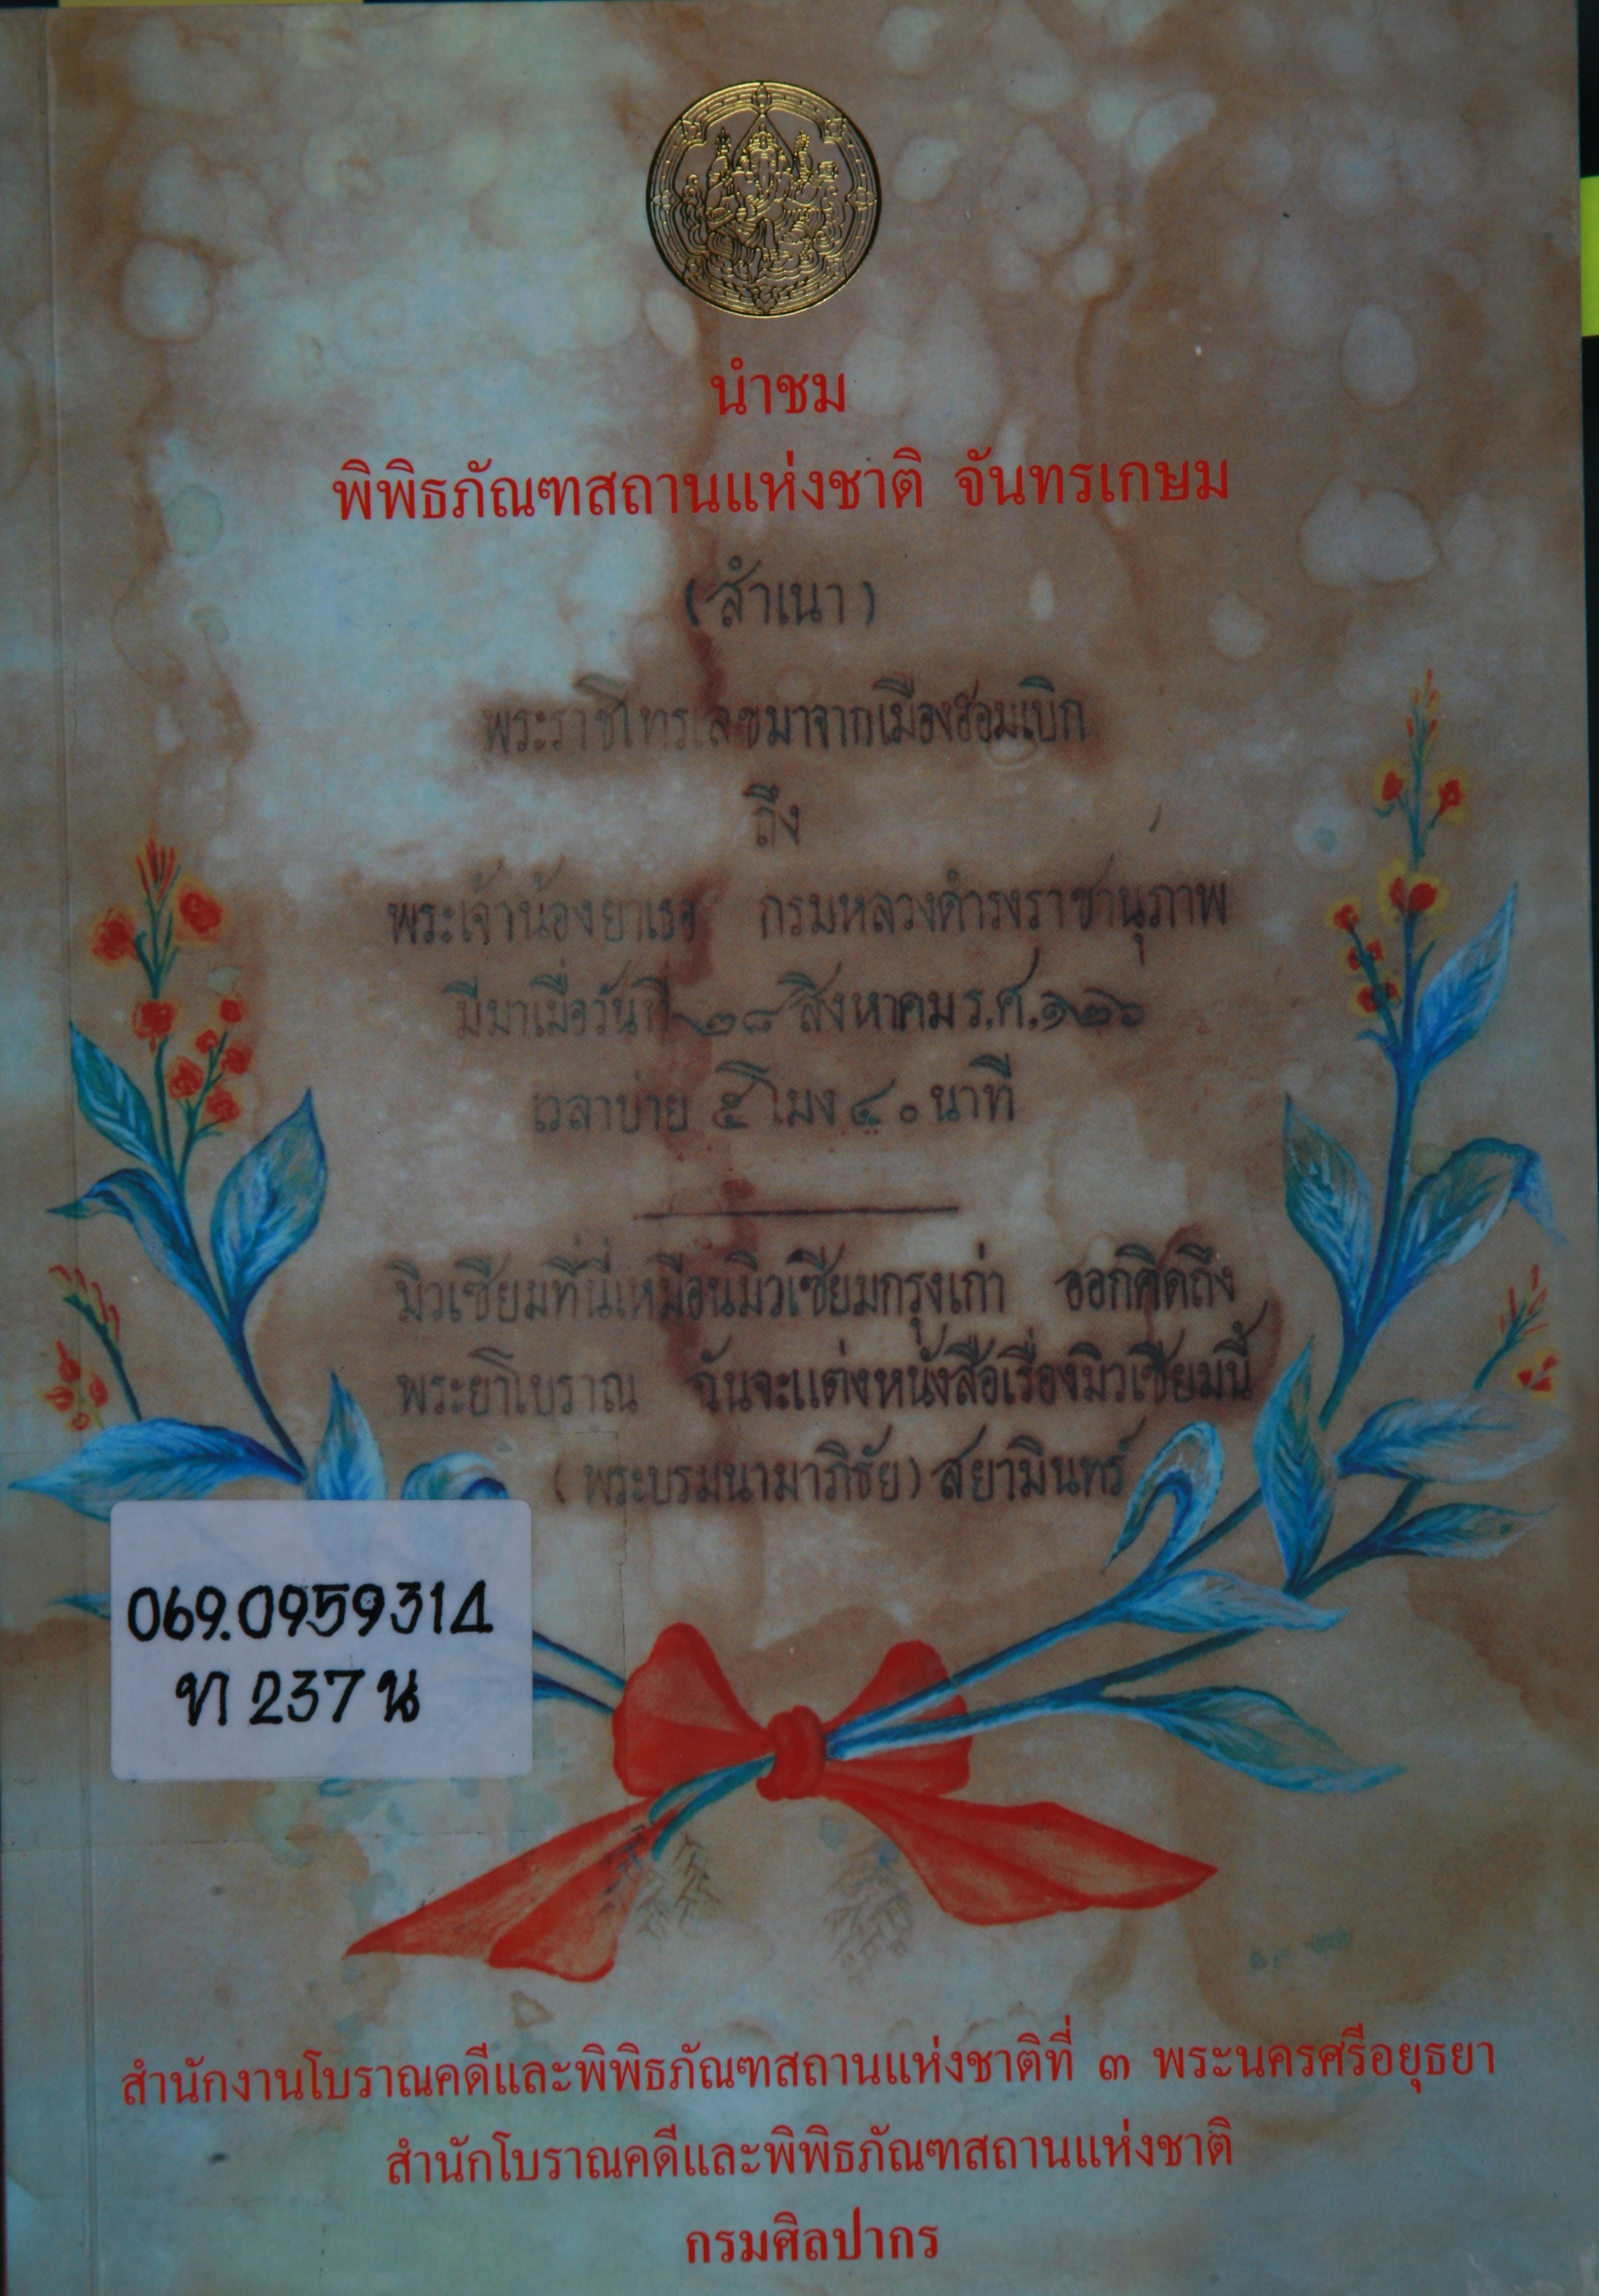 นำชม
พิพิธภัณฑสถานแห่งชาติ จันทรเกษม
(สำเนา)
พระราชโทรเลขมาจากเมืองฮอมเบิก
ถึง
พระเจ้าน้องยาเธอ กรมหลวงดำรงราชานุภาพ
มีมาเมื่อวันที่ ๒๘ สิงหาคม ร.ศ. ๑๒๖
เวลาบ่าย ๕ โมง ๔๐ นาที
มิวเซียมที่นี่เหมือนมิวเซียมกรุงเก่า ออกคิดถึง
พระยาโบราณ ฉันจะแต่งหนังสือเรื่องมิวเซียมนี้
(พระบรมนามาภิธัย) สยามินทร์
069.0959314
ท 237 น
สำนักงานโบราณคดีและพิพิธภัณฑสถานแห่งชาติที่ ๓ พระนครศรีอยุธยา
สำนักโบราณคดีและพิพิธภัณฑสถานแห่งชาติ
กรมศิลปากร